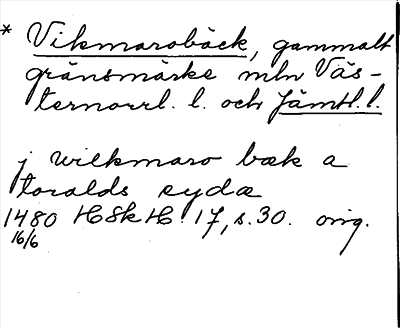 * Vikmarobäck, gammalt
gränsmärke mln Väs-
ternorrl. l. och Jämtl. l.
j wikmaro bæk a
toralds sydæ
1480 HSkH 17, s. 30. orig.
16/6